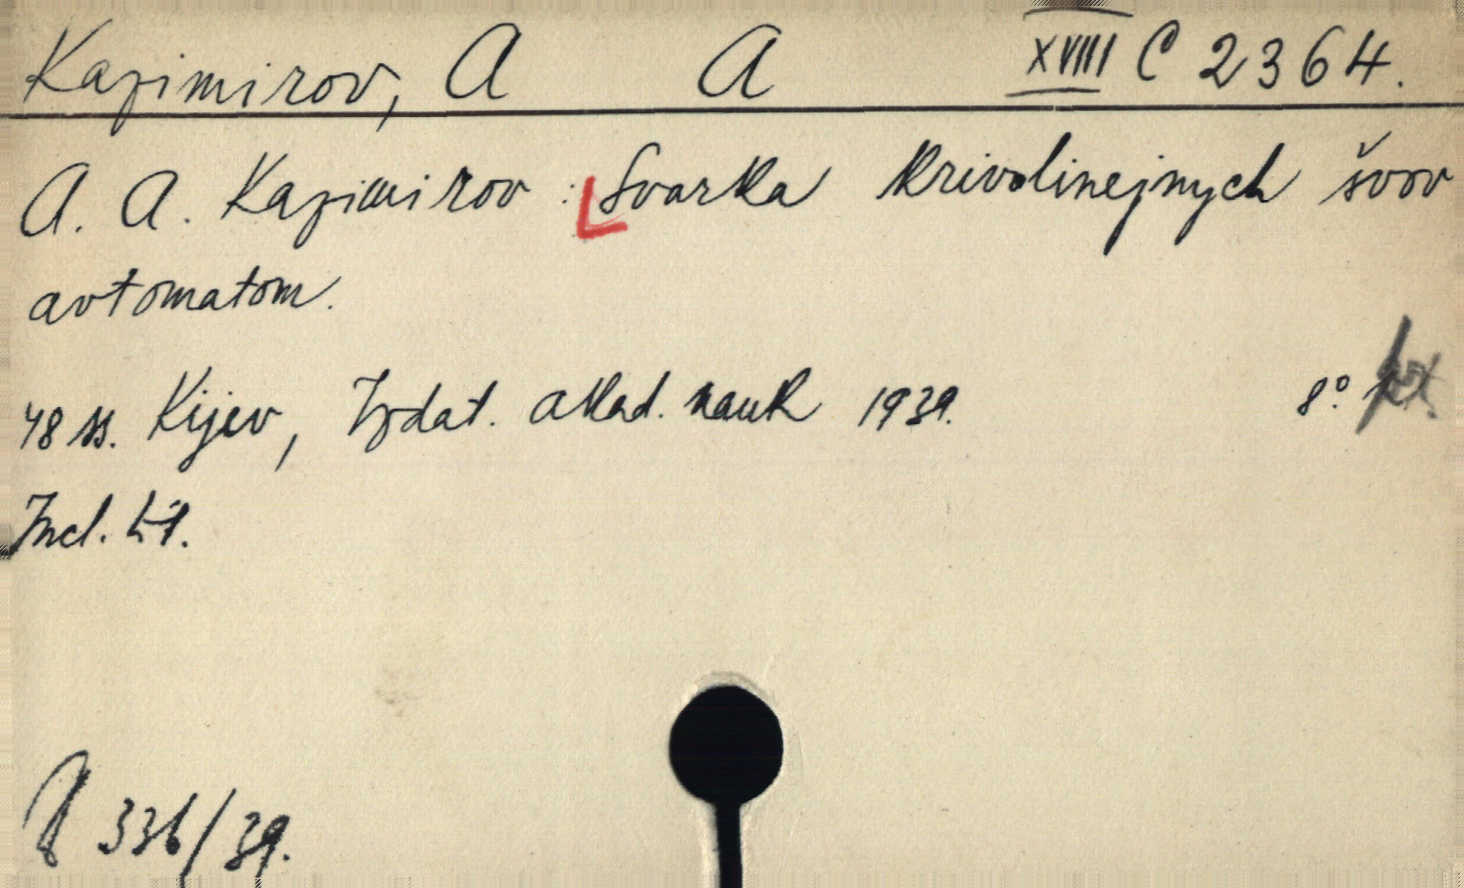 Kazimirov, A A XVIII C 2364.
A. A. Kazimirov : Svarka krivolinejnych švov
avtomatom.
48 ss. Kijev, Izdat. akad. nauk 1939. 8°
Incl. lit.
336/39.